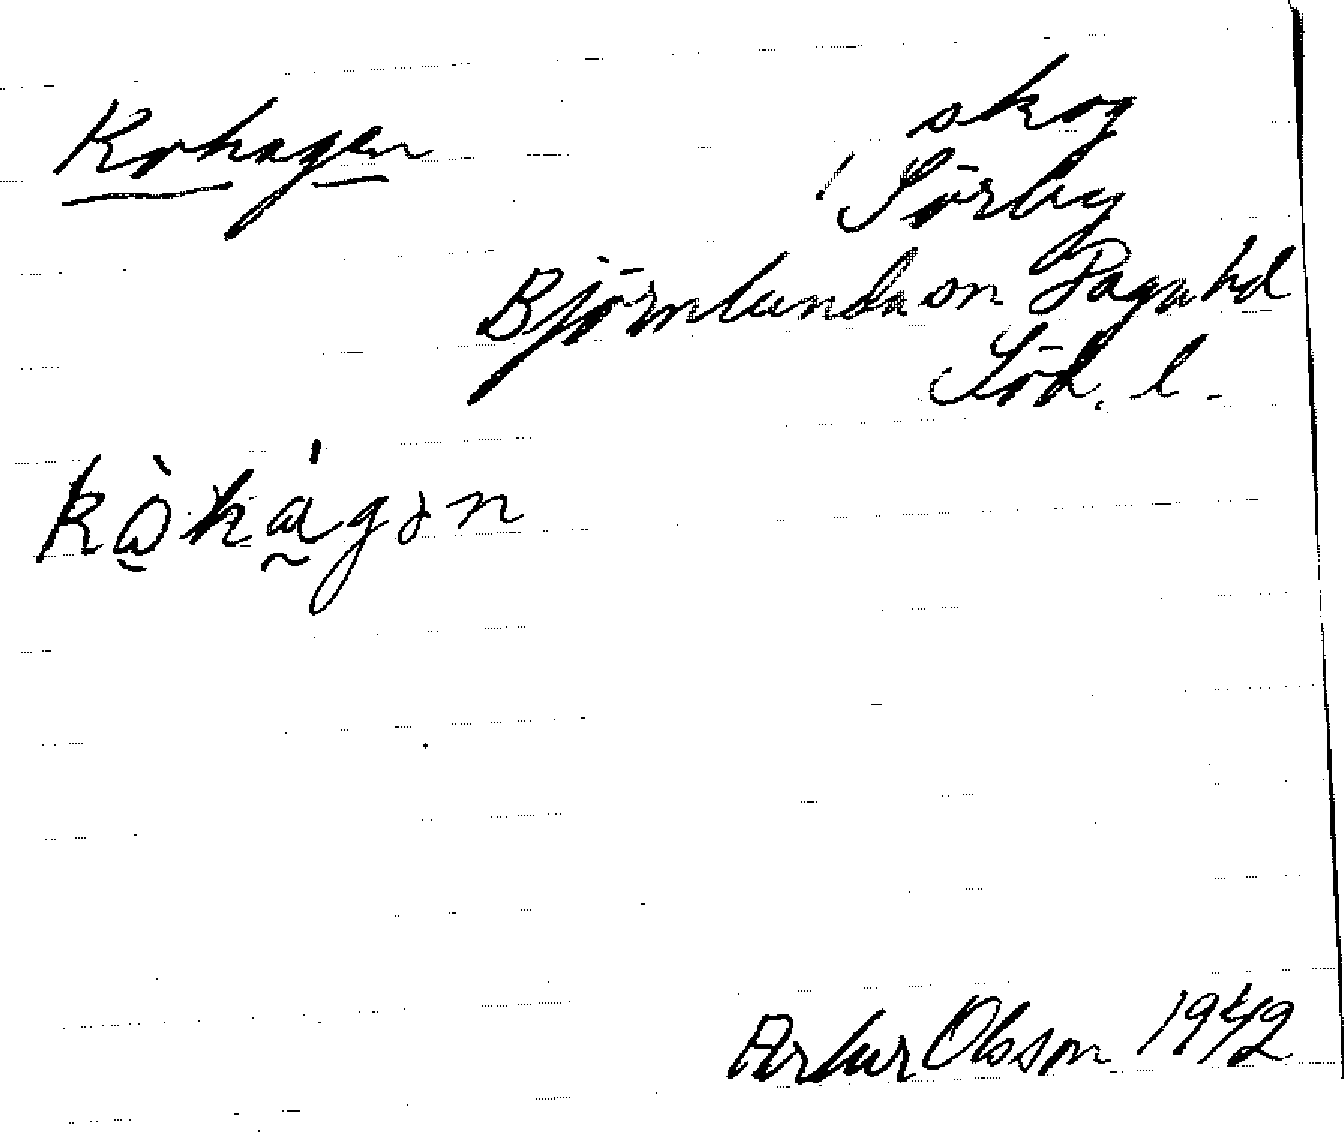 Kohagen
skog
Sörby
Björnlunda sn Daga hd
Söd. l.
kò̰há̰gən
Artur Olsson 1942